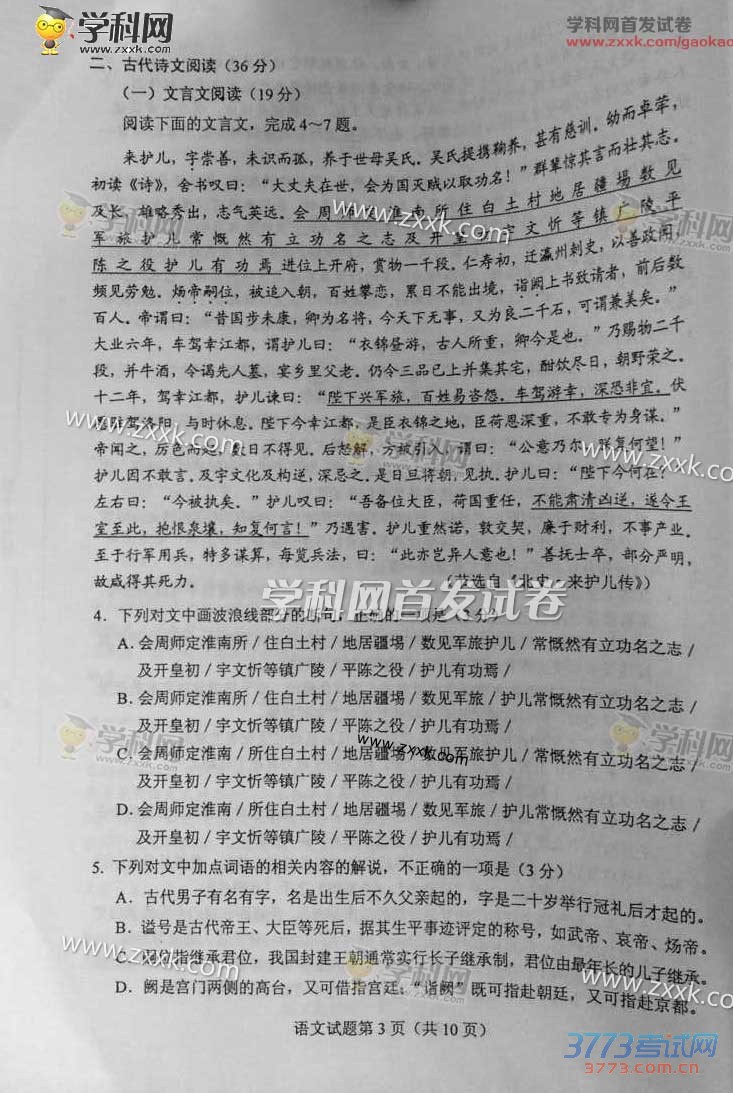 学科网
www.zxxk.com
学科网首发试卷
www.zxxk.com/gaokao
二、古代诗文阅读（36 分）
（一）文言文阅读（19 分）
阅读下面的文言文，完成 4～7 题。
来护儿，字崇善，未识而孤，养于世母吴氏。吴氏提携鞠养，甚有慈训。幼而卓荦，
初读《诗》，舍书叹曰：“大丈夫在世，会为国灭贼以取功名！”群辈惊其言而壮其志。
及长，雄略秀出，志气英远。会周师定淮南所住白土村地居疆埸数见
军旅护儿常慨然有立功名之志及开皇初宇文忻等镇广陵平
陈之役护儿有功焉进位上开府，赏物一千段。仁寿初，迁瀛州刺史，以善政闻，
频见劳勉。炀帝嗣位，被追入朝，百姓攀恋，累日不能出境，诣阙上书致请者，前后数
百人。帝谓曰：“昔国步未康，卿为名将，今天下无事，又为良二千石，可谓兼美矣。”
大业六年，车驾幸江都，谓护儿曰：“衣锦昼游，古人所重，卿今是也。”乃赐物二千
段，并牛酒，令谒先人墓，宴乡里父老。仍令三品已上并集其宅，酣饮尽日，朝野荣之。
十二年，驾幸江都，护儿谏曰：“陛下兴军旅，百姓易咨怨。车驾游幸，深恐非宜。伏
愿驻驾洛阳，与时休息。陛下今幸江都，是臣衣锦之地，臣荷恩深重，不敢专为身谋。”
帝闻之，厉色而起，数日不得见。后怒解，方被引入，谓曰：“公意乃尔，朕复何望！”
护儿因不敢言。及宇文化及构逆，深忌之。是日旦将朝，见执。护儿曰：“陛下今何在？”
左右曰：“今被执矣。”护儿叹曰：“吾备位大臣，荷国重任，不能肃清凶逆，遂令王
室至此，抱恨泉壤，知复何言！”乃遇害。护儿重然诺，敦交契，廉于财利，不事产业。
至于行军用兵，特多谋算，每览兵法，曰：“此亦岂异人意也！”善抚士卒，部分严明，
故咸得其死力。
（节选自《北史·来护儿传》）
学科网首发试卷
4. 下列对文中画波浪线部分的断句，正确的一项是（3 分）
A. 会周师定淮南所 / 住白土村 / 地居疆埸 / 数见军旅护儿 / 常慨然有立功名之志 /
及开皇初 / 宇文忻等镇广陵 / 平陈之役 / 护儿有功焉 /
B. 会周师定淮南所 / 住白土村 / 地居疆埸 / 数见军旅 / 护儿常慨然有立功名之志 /
及开皇初 / 宇文忻等镇广陵 / 平陈之役 / 护儿有功焉 /
C. 会周师定淮南 / 所住白土村 / 地居疆埸 / 数见军旅护儿 / 常慨然有立功名之志 /
及开皇初 / 宇文忻等镇广陵 / 平陈之役 / 护儿有功焉 /
D. 会周师定淮南 / 所住白土村 / 地居疆埸 / 数见军旅 / 护儿常慨然有立功名之志 /
及开皇初 / 宇文忻等镇广陵 / 平陈之役 / 护儿有功焉 /
5. 下列对文中加点词语的相关内容的解说，不正确的一项是（3 分）
A．古代男子有名有字，名是出生后不久父亲起的，字是二十岁举行冠礼后才起的。
B．谥号是古代帝王、大臣等死后，据其生平事迹评定的称号，如武帝、哀帝、炀帝。
C．嗣位指继承君位，我国封建王朝通常实行长子继承制，君位由最年长的儿子继承。
D．阙是宫门两侧的高台，又可借指宫廷；“诣阙”既可指赴朝廷，又可指赴京都。
语文试题第 3 页（共 10 页）
3773考试网
3773.com.cn